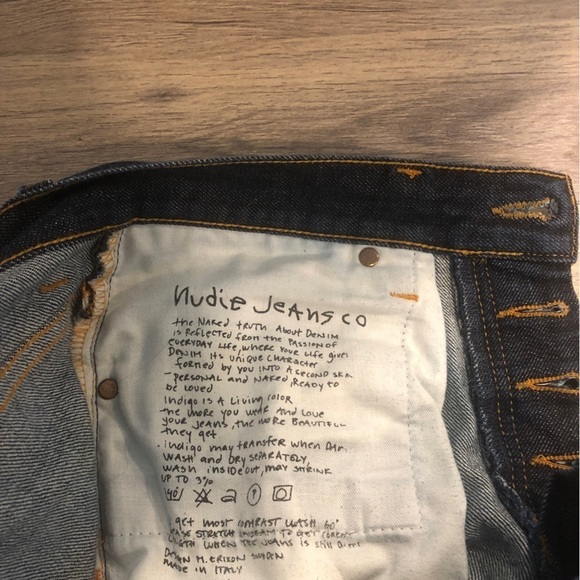 Nudie Jeans co
the Naked truth About Denim
is Reflected from the Passion of
everyday Life, where your life gives
Denim its unique character
formed by you into a second skin
- personal and naked, ready to
be loved
Indigo is a Living color
- the more you wear and love
your jeans, the more beautiful
they get
. indigo may transfer when
wash and Dry separately
wash inside out, may shrink
up to 3%
40°
. get most contrast wash 60°
stretch inseam to get correct
length when the jeans is still
M. Erixon Sweden
made in Italy